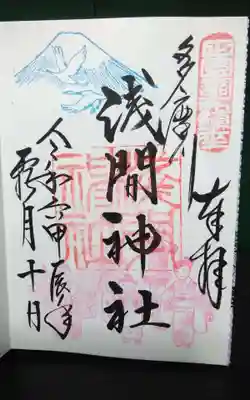 奉拝
多摩川
浅間神社
令和六甲辰年
霜月十日